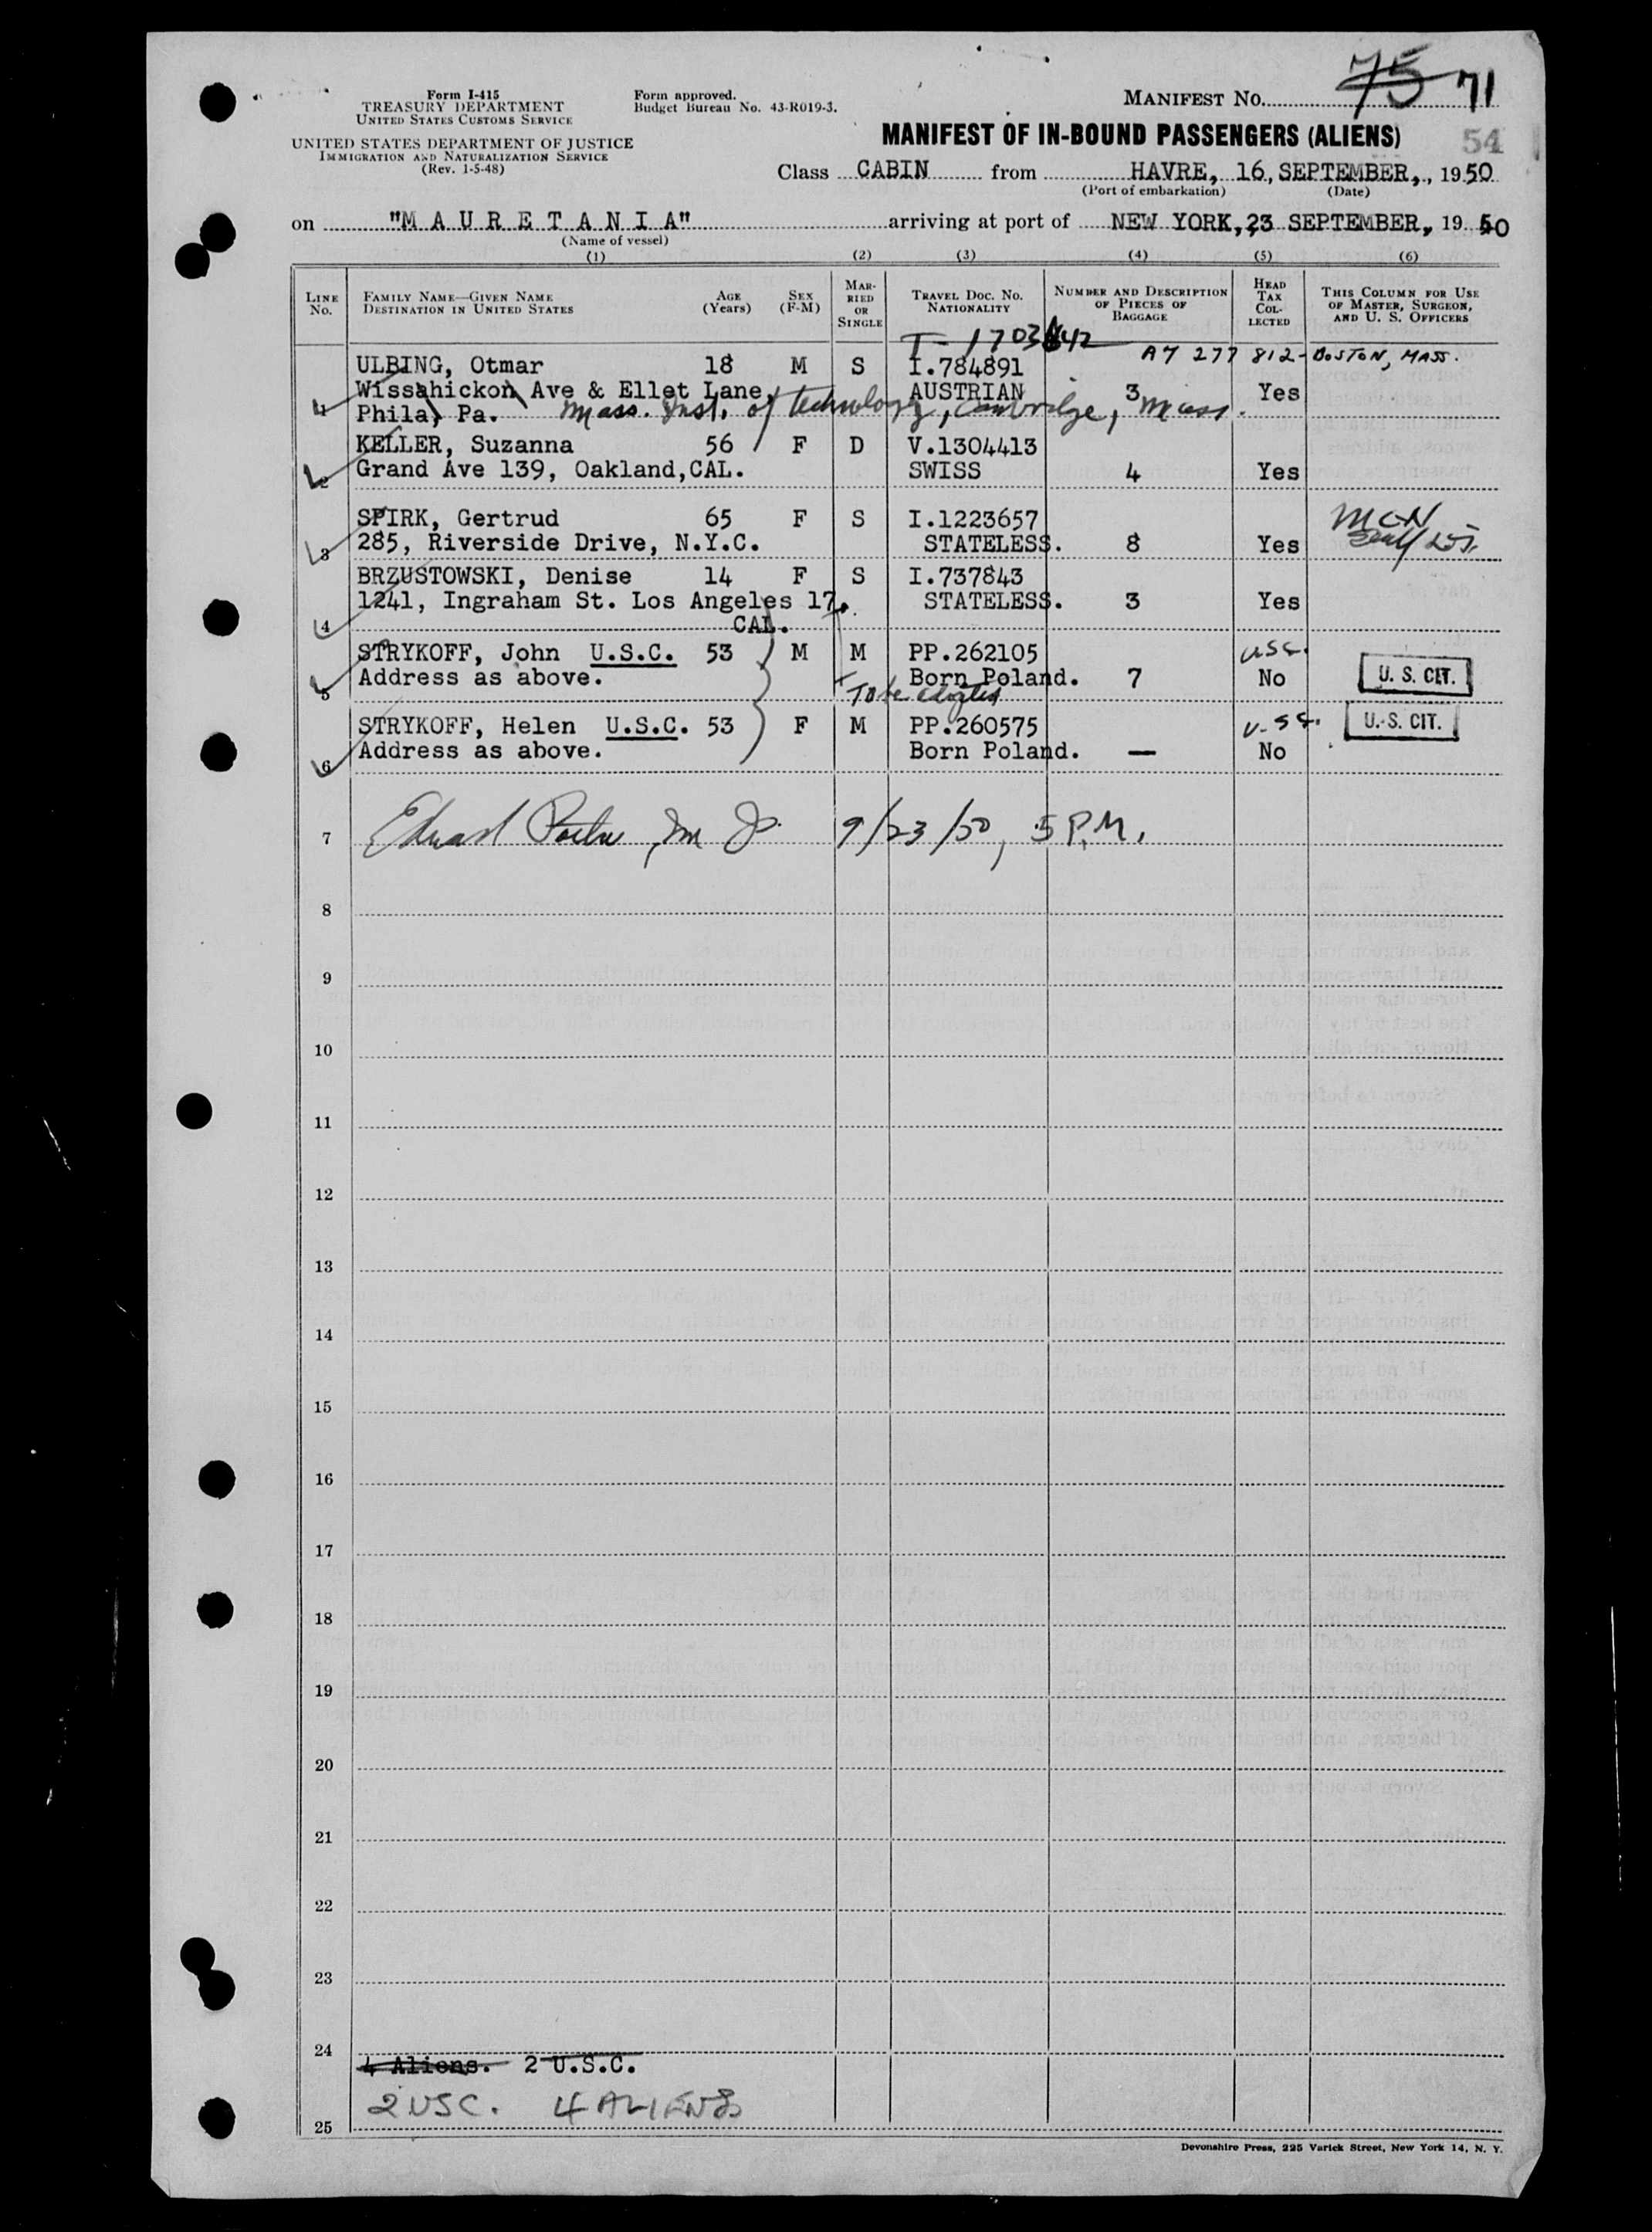 75 71
Form I-415
TREASURY DEPARTMENT
UNITED STATES CUSTOMS SERVICE
UNITED STATES DEPARTMENT OF JUSTICE
IMMIGRATION AND NATURALIZATION SERVICE
(Rev. 1-5-48)
Form approved.
Budget Bureau No. 43-R019-3.
MANIFEST NO.
MANIFEST OF IN-BOUND PASSENGERS (ALIENS)
54
Class CABIN from HAVRE, 16, SEPTEMBER, , 1950
(Port of embarkation) (Date)
on "M A U R E T A N I A" arriving at port of NEW YORK, 23 SEPTEMBER, 1950
(Name of vessel)
(1) (2) (3) (4) (5) (6)
LINE NO.
FAMILY NAME—GIVEN NAME
DESTINATION IN UNITED STATES
AGE (Years)
SEX (F-M)
MARRIED OR SINGLE
TRAVEL DOC. NO.
NATIONALITY
NUMBER AND DESCRIPTION OF PIECES OF BAGGAGE
HEAD TAX COLLECTED
THIS COLUMN FOR USE OF MASTER, SURGEON, AND U. S. OFFICERS
A7 277 812- BOSTON, MASS.
ULBING, Otmar 18 M S I.784891
Wissahickon Ave & Ellet Lane, AUSTRIAN 3 Yes
Phila, Pa. Mass. Inst. of Technology, Cambridge, Mass.
KELLER, Suzanna 56 F D V.1304413
2 Grand Ave 139, Oakland,CAL. SWISS 4 Yes
SPIRK, Gertrud 65 F S I.1223657
3 285, Riverside Drive, N.Y.C. STATELESS. 8 Yes
BRZUSTOWSKI, Denise 14 F S I.737843
1241, Ingraham St. Los Angeles 17, STATELESS. 3 Yes
4 CAL.
STRYKOFF, John U.S.C. 53 M M PP.262105 USC.
5 Address as above. Born Poland. 7 No U. S. CIT.
To be adopted
STRYKOFF, Helen U.S.C. 53 F M PP.260575 U.S.C. U. S. CIT.
6 Address as above. Born Poland. — No
7 9/23/50, 5 P.M.
8
9
10
11
12
13
14
15
16
17
18
19
20
21
22
23
24
4 Aliens. 2 U.S.C.
2 USC. 4 ALIENS
25
Devonshire Press, 225 Varick Street, New York 14, N. Y.